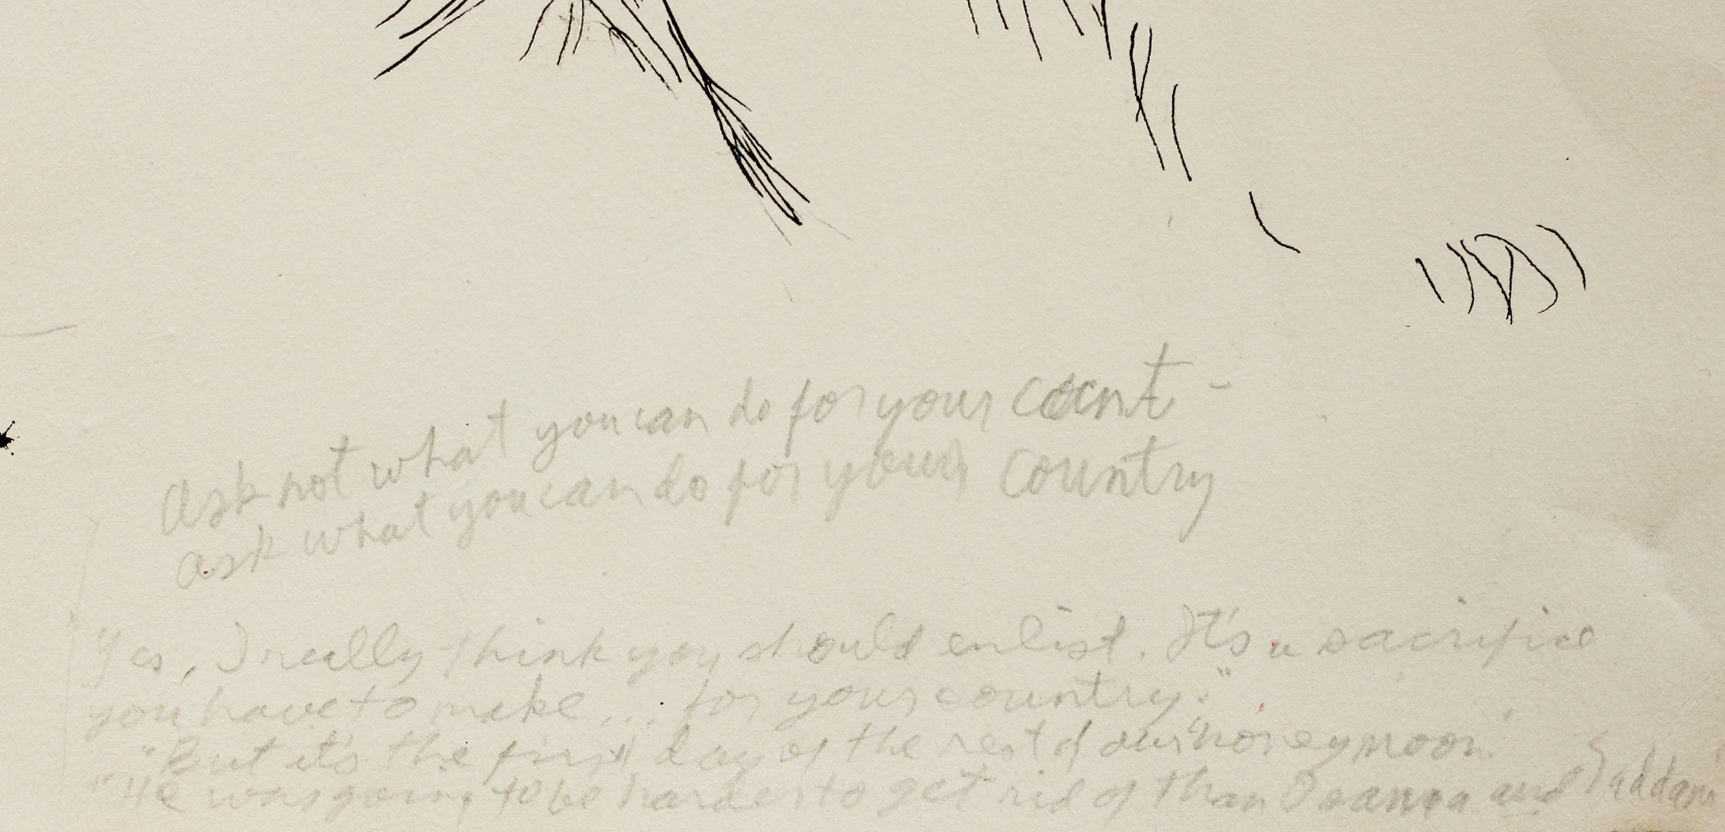 Ask not what you can do for your count -
Ask what you can do for your country
Yes, I really think you should enlist. It's a sacrifice
you have to make... for your country."
"But it's the first day of the rest of our honeymoon"
"He was going to be harder to get rid of than Osama and Saddam"